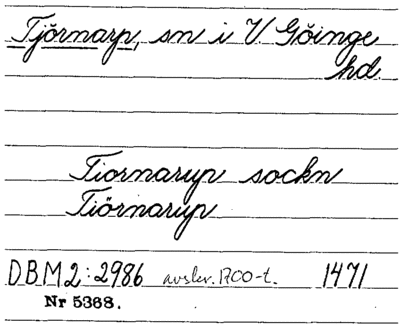 Tjörnarp, sn i V Göinge
hd.
Tiornarup sockn
Tiörnarup
DBM 2:2986 avskr. 1700-t. 1471
Nr 5368.